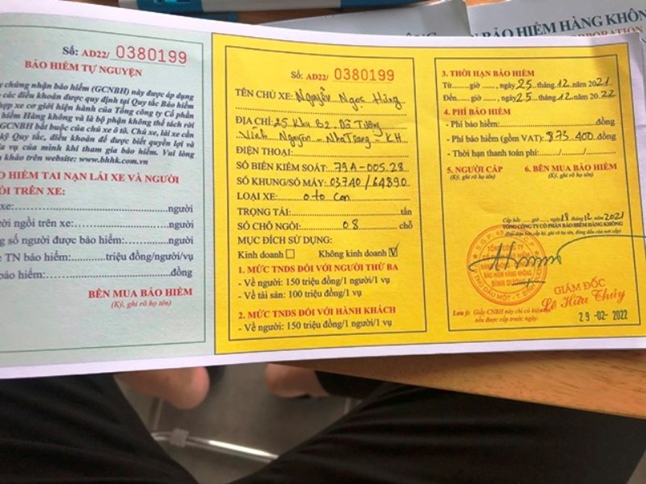 BẢO HIỂM HÀNG KHÔNG
Số: AD22/ 0380199
BẢO HIỂM TỰ NGUYỆN
chứng nhận bảo hiểm (GCNBH) này được áp dụng
các điều khoản được quy định tại Quy tắc Bảo hiểm
hợp xe cơ giới hiện hành của Tổng công ty Cổ phần
hiểm Hàng không và là bộ phận không thể tách rời
GCNBH bắt buộc của chủ xe ô tô. Chủ xe, lái xe cần
kỹ Quy tắc, điều khoản để được biết quyền lợi và
vụ của mình khi tham gia bảo hiểm. Vui lòng
khảo trên website: www.bhhk.com.vn
HIỂM TAI NẠN LÁI XE VÀ NGƯỜI
TRÊN XE:
xe: người
người ngồi trên xe: người
số người được bảo hiểm: người
TN bảo hiểm: triệu đồng/người/vụ
bảo hiểm: đồng
BÊN MUA BẢO HIỂM
(Ký, ghi rõ họ tên)
Số: AD22/ 0380199
TÊN CHỦ XE: Nguyễn Ngọc Hùng
ĐỊA CHỈ: 25 Khu B2, Dã Tượng
Vĩnh Nguyên - Nha Trang - KH
ĐIỆN THOẠI:
SỐ BIỂN KIỂM SOÁT: 79A-005.28
SỐ KHUNG/SỐ MÁY: 03740/64890
LOẠI XE: Ô tô con
TRỌNG TẢI: tấn
SỐ CHỖ NGỒI: 08 chỗ
MỤC ĐÍCH SỬ DỤNG:
Kinh doanh Không kinh doanh
1. MỨC TNDS ĐỐI VỚI NGƯỜI THỨ BA
- Về người: 150 triệu đồng/1 người/1 vụ
- Về tài sản: 100 triệu đồng/1 vụ
2. MỨC TNDS ĐỐI VỚI HÀNH KHÁCH
- Về người: 150 triệu đồng/1 người/1 vụ
3. THỜI HẠN BẢO HIỂM
Từ giờ, ngày 25.12.2021
Đến giờ, ngày 25.12.2022
4. PHÍ BẢO HIỂM
- Phí bảo hiểm: đồng
- Phí bảo hiểm (gồm VAT): 873.400 đồng
- Thời hạn thanh toán phí: /
5. NGƯỜI CẤP 6. BÊN MUA BẢO HIỂM
(Ký, ghi rõ họ tên) (Ký, ghi rõ họ tên)
Cấp hồi giờ, ngày 18/12/2021
TỔNG CÔNG TY CỔ PHẦN BẢO HIỂM HÀNG KHÔNG
GIÁM ĐỐC
Lê Hữu Thủy
29-02-2022